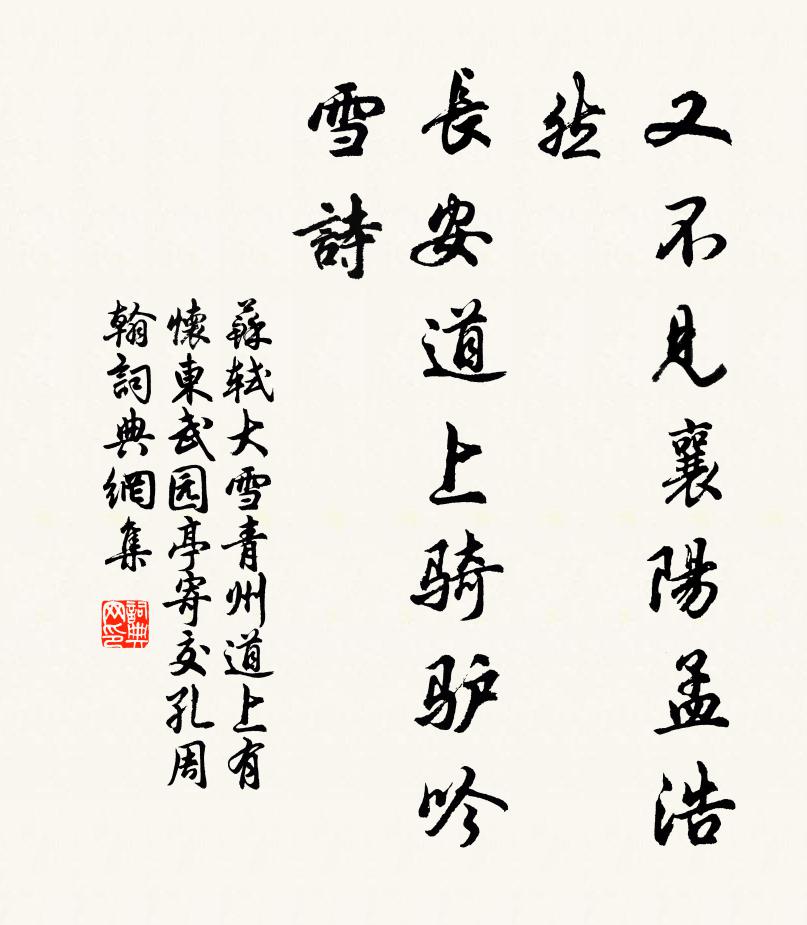 又不见襄陽孟浩
然
長安道上骑驴吟
雪詩
蘇轼大雪青州道上有
懷東武园亭寄交孔周
翰詞典網集
詞典
网印